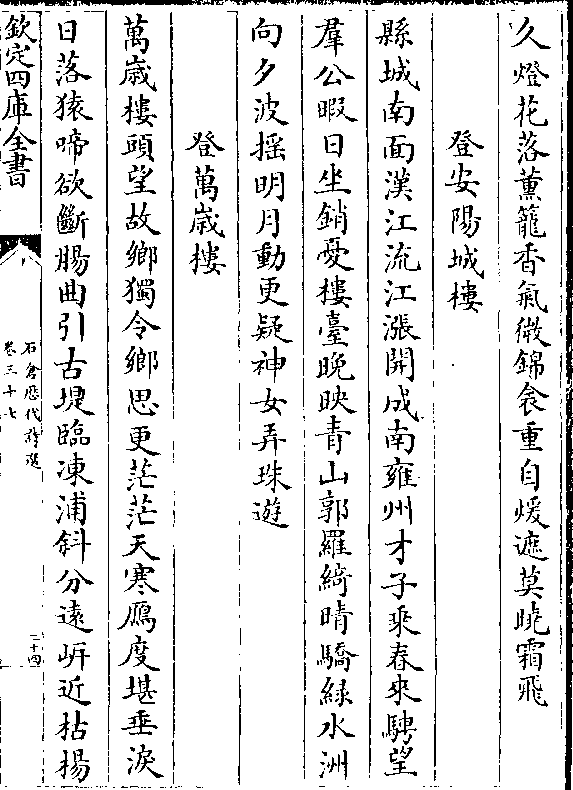 久燈花落薰籠香氣微錦衾重自煖遮莫曉霜飛
登安陽城樓
縣城南面漢江流江漲開成南雍州才子乘春來騁望
羣公暇日坐銷憂樓臺晚映青山郭羅綺晴驕緑水洲
向夕波揺明月動更疑神女弄珠遊
登萬嵗樓
萬嵗樓頭望故鄉獨令鄉思更茫茫天寒鴈度堪垂淚
日落猿啼欲斷腸曲引古堤臨凍浦斜分遠岍近枯揚
欽定四庫全書
石倉歴代詩選
卷三十七
二十四